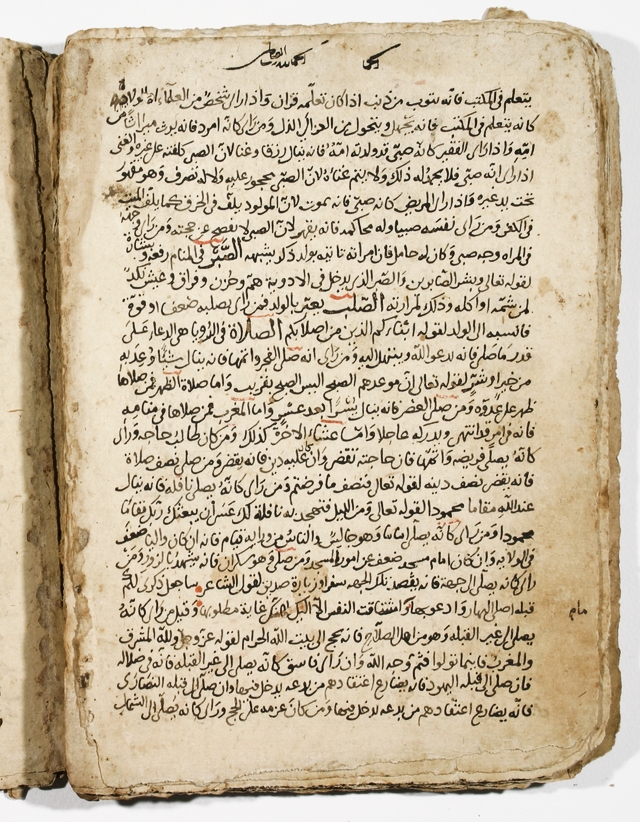 يتعلم في المكتب فانه يتوب من ذنب اذا كان تعلمه قران واذا راى شخص من العلماء او الولاة
كانه يتعلم في المكتب فانه يجهل ويتحول من العز الى الذل ومن راى كانه امرد فانه يرث ميراثا من
امه واذا راى الفقير كانه صبي قد ولدته امه فانه ينال رزقا وغنا لان الصبي كلفته على غيره والغني
اذا راى انه صبي فلا يحمد له ذلك ولا يتم غناه لان الصبي محجور عليه ولا له تصرف وهو مقهور
تحت يد غيره واذا راى المريض كانه صبي فانه يموت لان المولود يلف في الخرق كما يلف الميت
في الكفن ومن راى نفسه صبيا وله محاكمه فانه يقهر لان الصبي لا يفصح عن حجته ومن راى
في المراه وجه صبي وكان له حامل فان امراته تاتيه بولد ذكر يشبهه الصبر في المنام رفعة وبشاره
لقوله تعالى وبشر الصابرين والصبر الذي يدخل في الادوية هم وحزن وفراق وعيش نكد
لمن شمه او اكله وذلك لمرارته الصلب يعبر بالولد فمن راى بصلبه ضعف او قوة
فانسبه الى الولد لقوله ابنائكم الذين من اصلابكم الصلاة في الرويا هي الدعاء على
قدر ما صلى فانه يدعو الله ويبتهل اليه ومن راى انه صلى الفجر واتمها فانه ينال شيا وعد به
من خير او شر لقوله تعالى ان موعدهم الصبح اليس الصبح بقريب واما صلاة الظهر فمن صلاها
ظهر على عدوه ومن صلى العصر فانه ينال يسرا بعد عسر واما المغرب فمن صلاها في منامه
فانه في امر قد انتهى ويدركه عاجلا واما عشاء الاخرة كذلك ومن كان طالب حاجه وراى
كانه يصلي فريضه واتمها فان حاجته تقضى وان عليه دين فانه يقضى ومن صلى نصف صلاة
فانه يقضي نصف دينه لقوله تعالى فنصف ما فرضتم ومن راى كانه يصلي نافله فانه ينال
عند الله مقاما محمودا لقوله تعالى ومن الليل فتهجد به نافلة لك عسى ان يبعثك ربك مقاما
محمودا ومن راى كانه يصلي اماما وهو جالس والناس من ورائه قيام فانه ان كان واليا ضعف
في الولايه وان كان امام مسجد ضعف عن امور المسجد ومن صلى وهو سكران فانه يشهد بالزور ومن
راى كانه يصلي الى جهة فانه يقصد تلك الجهه سفرا او زيارة صديق لقول الشاعر ساجعل ذكرى لكم
قبله اصلي اليها وادعو بها
يصلي الى غير القبله وهو من اهل الصلاح فانه يحج الى بيت الله الحرام لقوله عز وجل ولله المشرق
والمغرب فاينما تولوا فثم وجه الله وان راى فاسق كانه يصلي الى غير القبله فانه في ضلاله
فان صلى الى قبلة اليهود فانه يضارع اعتقادهم من بدعه يدخل فيها وان صلى الى قبلة النصارى
فانه يضارع اعتقادهم من بدعه يدخل فيها ومن كان عزمه على الحج وراى كانه يصلي الى الشمال